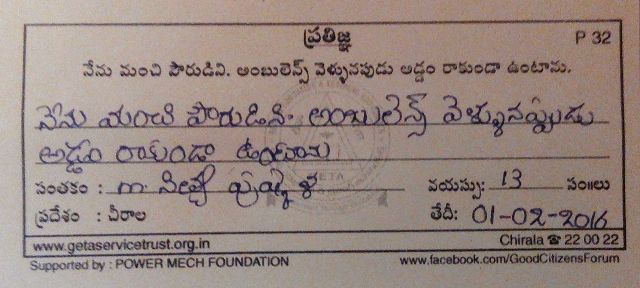 ప్రతిజ్ఞ P 32
నేను మంచి పౌరుడిని. అంబులెన్స్ వెళ్ళునపుడు అడ్డం రాకుండా ఉంటాను.
నేను మంచి పౌరుడిని. అంబులెన్స్ వెళ్ళునప్పుడు
అడ్డం రాకుండా ఉంటాను
సంతకం : m. వయస్సు: 13 సం॥లు
ప్రదేశం : చీరాల తేదీ: 01-02-2016
www.getaservicetrust.org.in Chirala ☎ 22 00 22
Supported by : POWER MECH FOUNDATION www.facebook.com/GoodCitizensForum